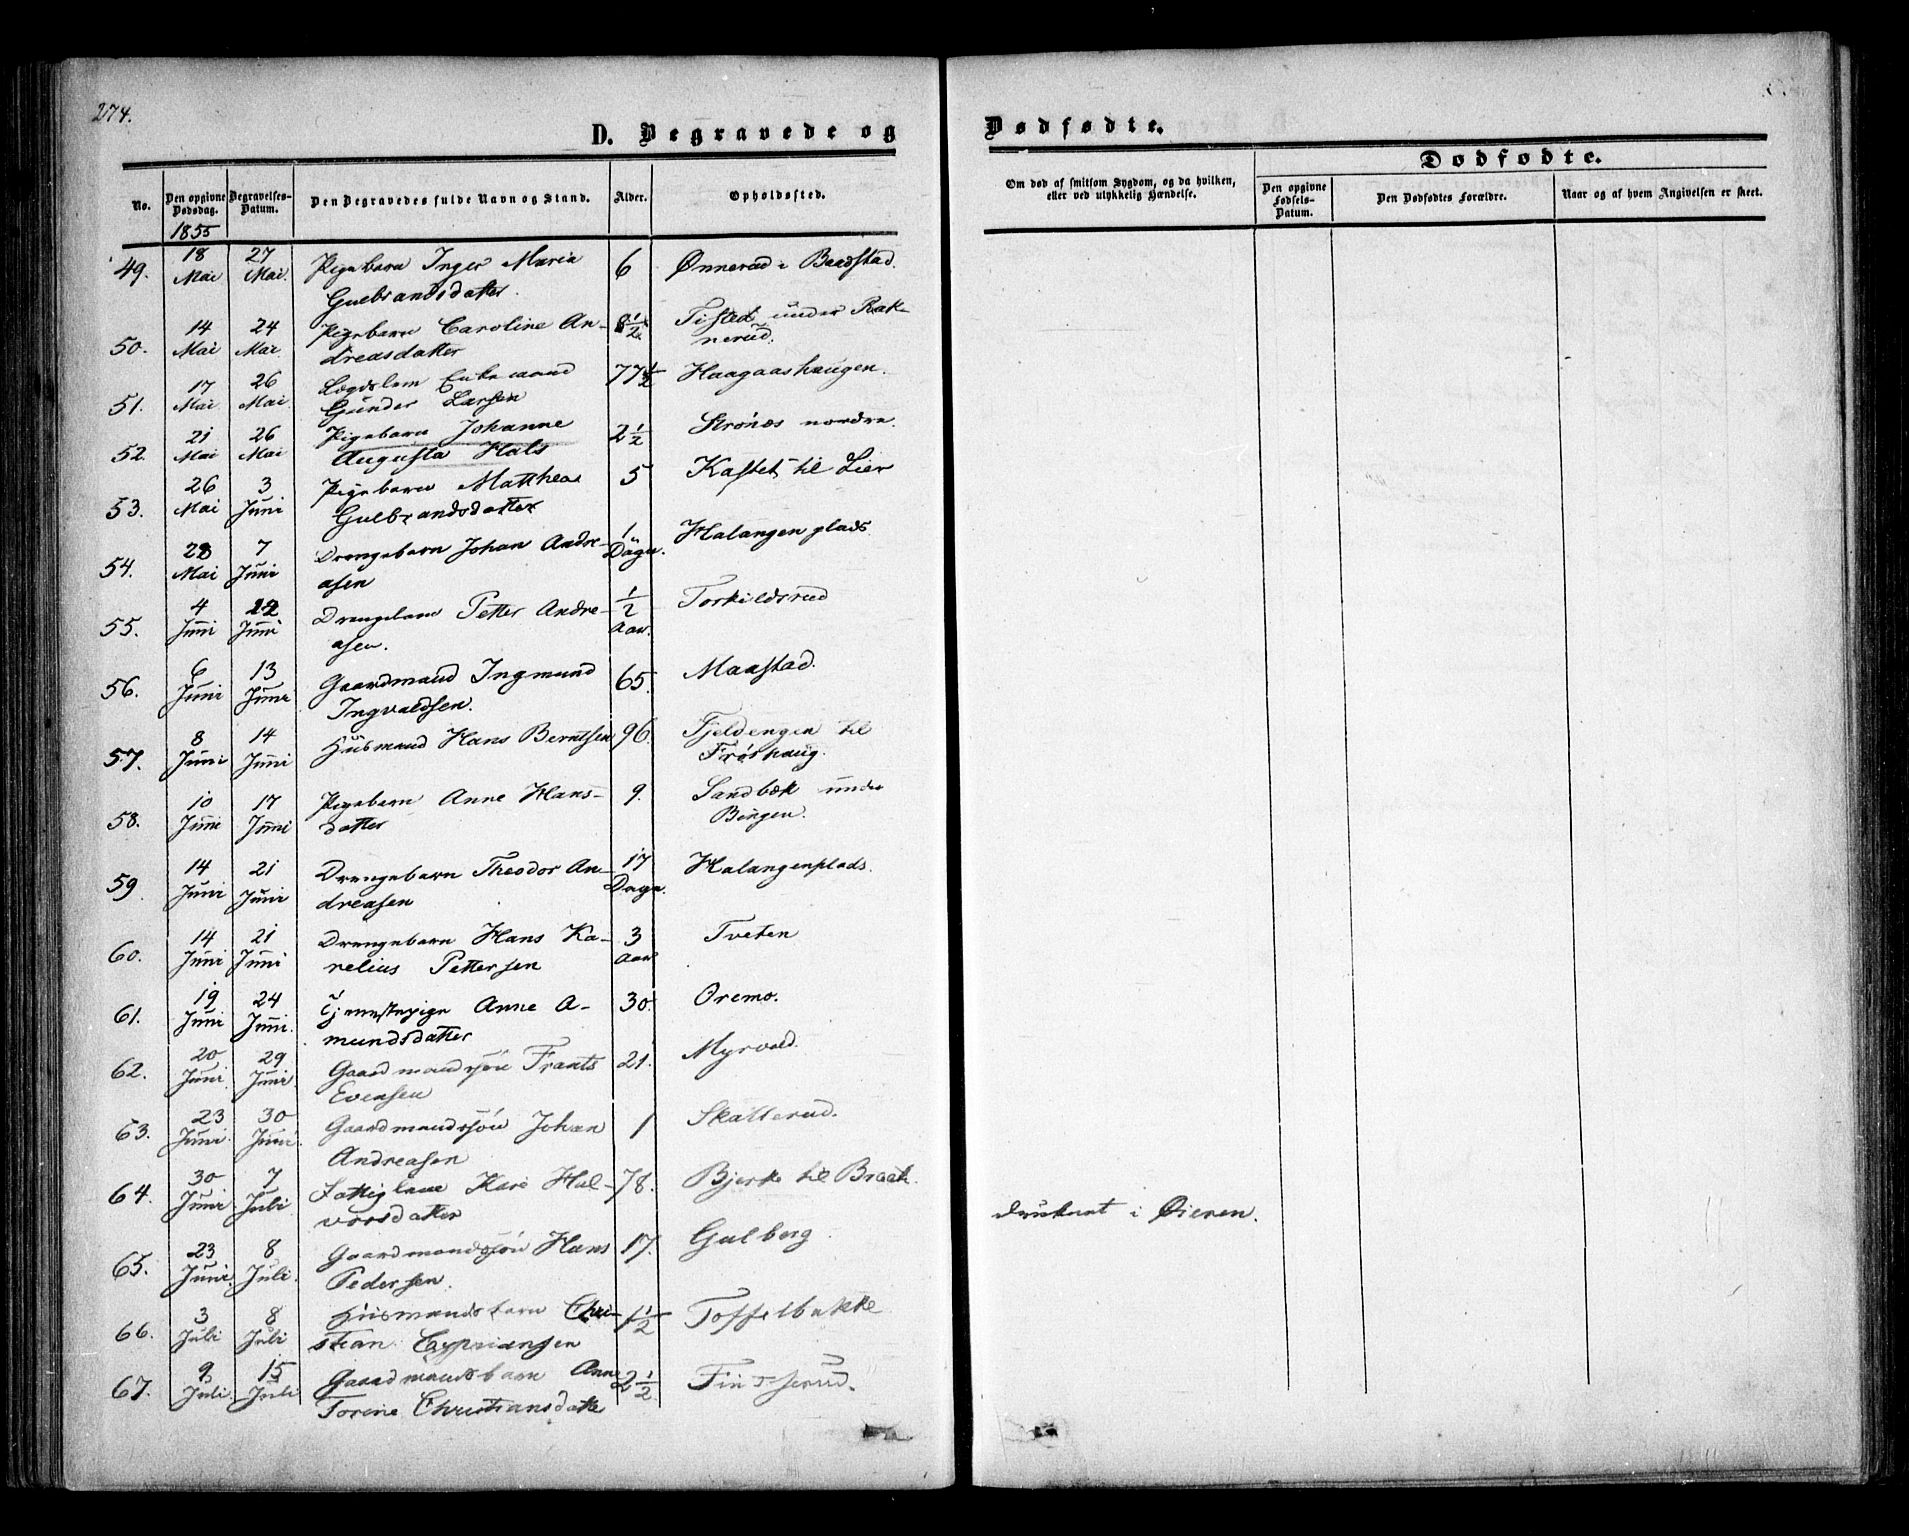 274.
D. Begravede og
No.
Den opgivne Dødsdag.
Begravelses-Datum.
Den Begravedes fulde Navn og Stand.
Alder.
Opholdssted.
1855
49. 18 Mai 27 Mai Pigebarn Inger Maria 6 Ønnerud i Baastad.
Gulbrandsdatter.
50. 14 Mai 24 Mai Pigebarn Caroline An- 8 1/2 Tisted under Rak-
dreasdatter nerud.
51. 17 Mai 26 Mai Lægdslem Enkemand 77 1/2 Haagaashaugen.
Gunder Larsen
52. 21 Mai 26 Mai Pigebarn Johanne 2 1/2 Strønes nordre.
Augusta Hals
53. 26 Mai 3 Juni Pigebarn Matthea 5 Kastet til Lier
Gulbrandsdatter
54. 28 Mai 7 Juni Drengebarn Johan Andre- 1 Døgn. Halangen plads
asen
55. 4 Juni Juni Drengebarn Petter Andre- 1/2 Aar. Torkildsrud
asen.
56. 6 Juni 13 Juni Gaardmand Ingmund 65. Maastad.
Ingvaldsen.
57. 8 Juni 14 Juni Huusmand Hans Berntsen 96. Fjeldengen til
Frøshaug.
58. 10 Juni 17 Juni Pigebarn Anne Hans- 9. Sandbæk under
datter Bingen.
59. 14 Juni 21 Juni Drengebarn Theodor An- 17 Dage. Halangenplads.
dreasen
60. 14 Juni 21 Juni Drengebarn Hans Ka- 3 Aar Tveten
relius Pettersen
61. 19 Juni 24 Juni. Tjenestepige Anne A- 30. Oremo.
mundsdatter
62. 20 Juni 29 Juni. Gaardmandssøn Frants 21. Myrvold.
Evensen
63. 23 Juni. 30 Juni Gaardmandssøn Johan 1 Skatterud.
Andreasen
64. 30 Juni 7 Juli Fattiglem Kari Hal- 78. Bjerke til Braate.
vorsdatter
65. 23 Juni. 8 Juli. Gaardmandssøn Hans 17. Gulberg
Pedersen.
66. 3 Juli 8 Juli Huusmandsbarn Chri- 1 1/2 Toffelbakke
stian Cypriansen
67. 9 Juli. 15 Juli Gaardmandsbarn Anne 2 1/2
Torine Christiansdatter
Dødfødte.
Om død af smitsom Sygdom, og da hvilken,
eller ved ulykkelig Hændelse.
Dødfødte.
Den opgivne Fødsels-Datum.
Den Dødfødtes Forældre.
Naar og af hvem Angivelsen er skeet.
druknet i Øieren.